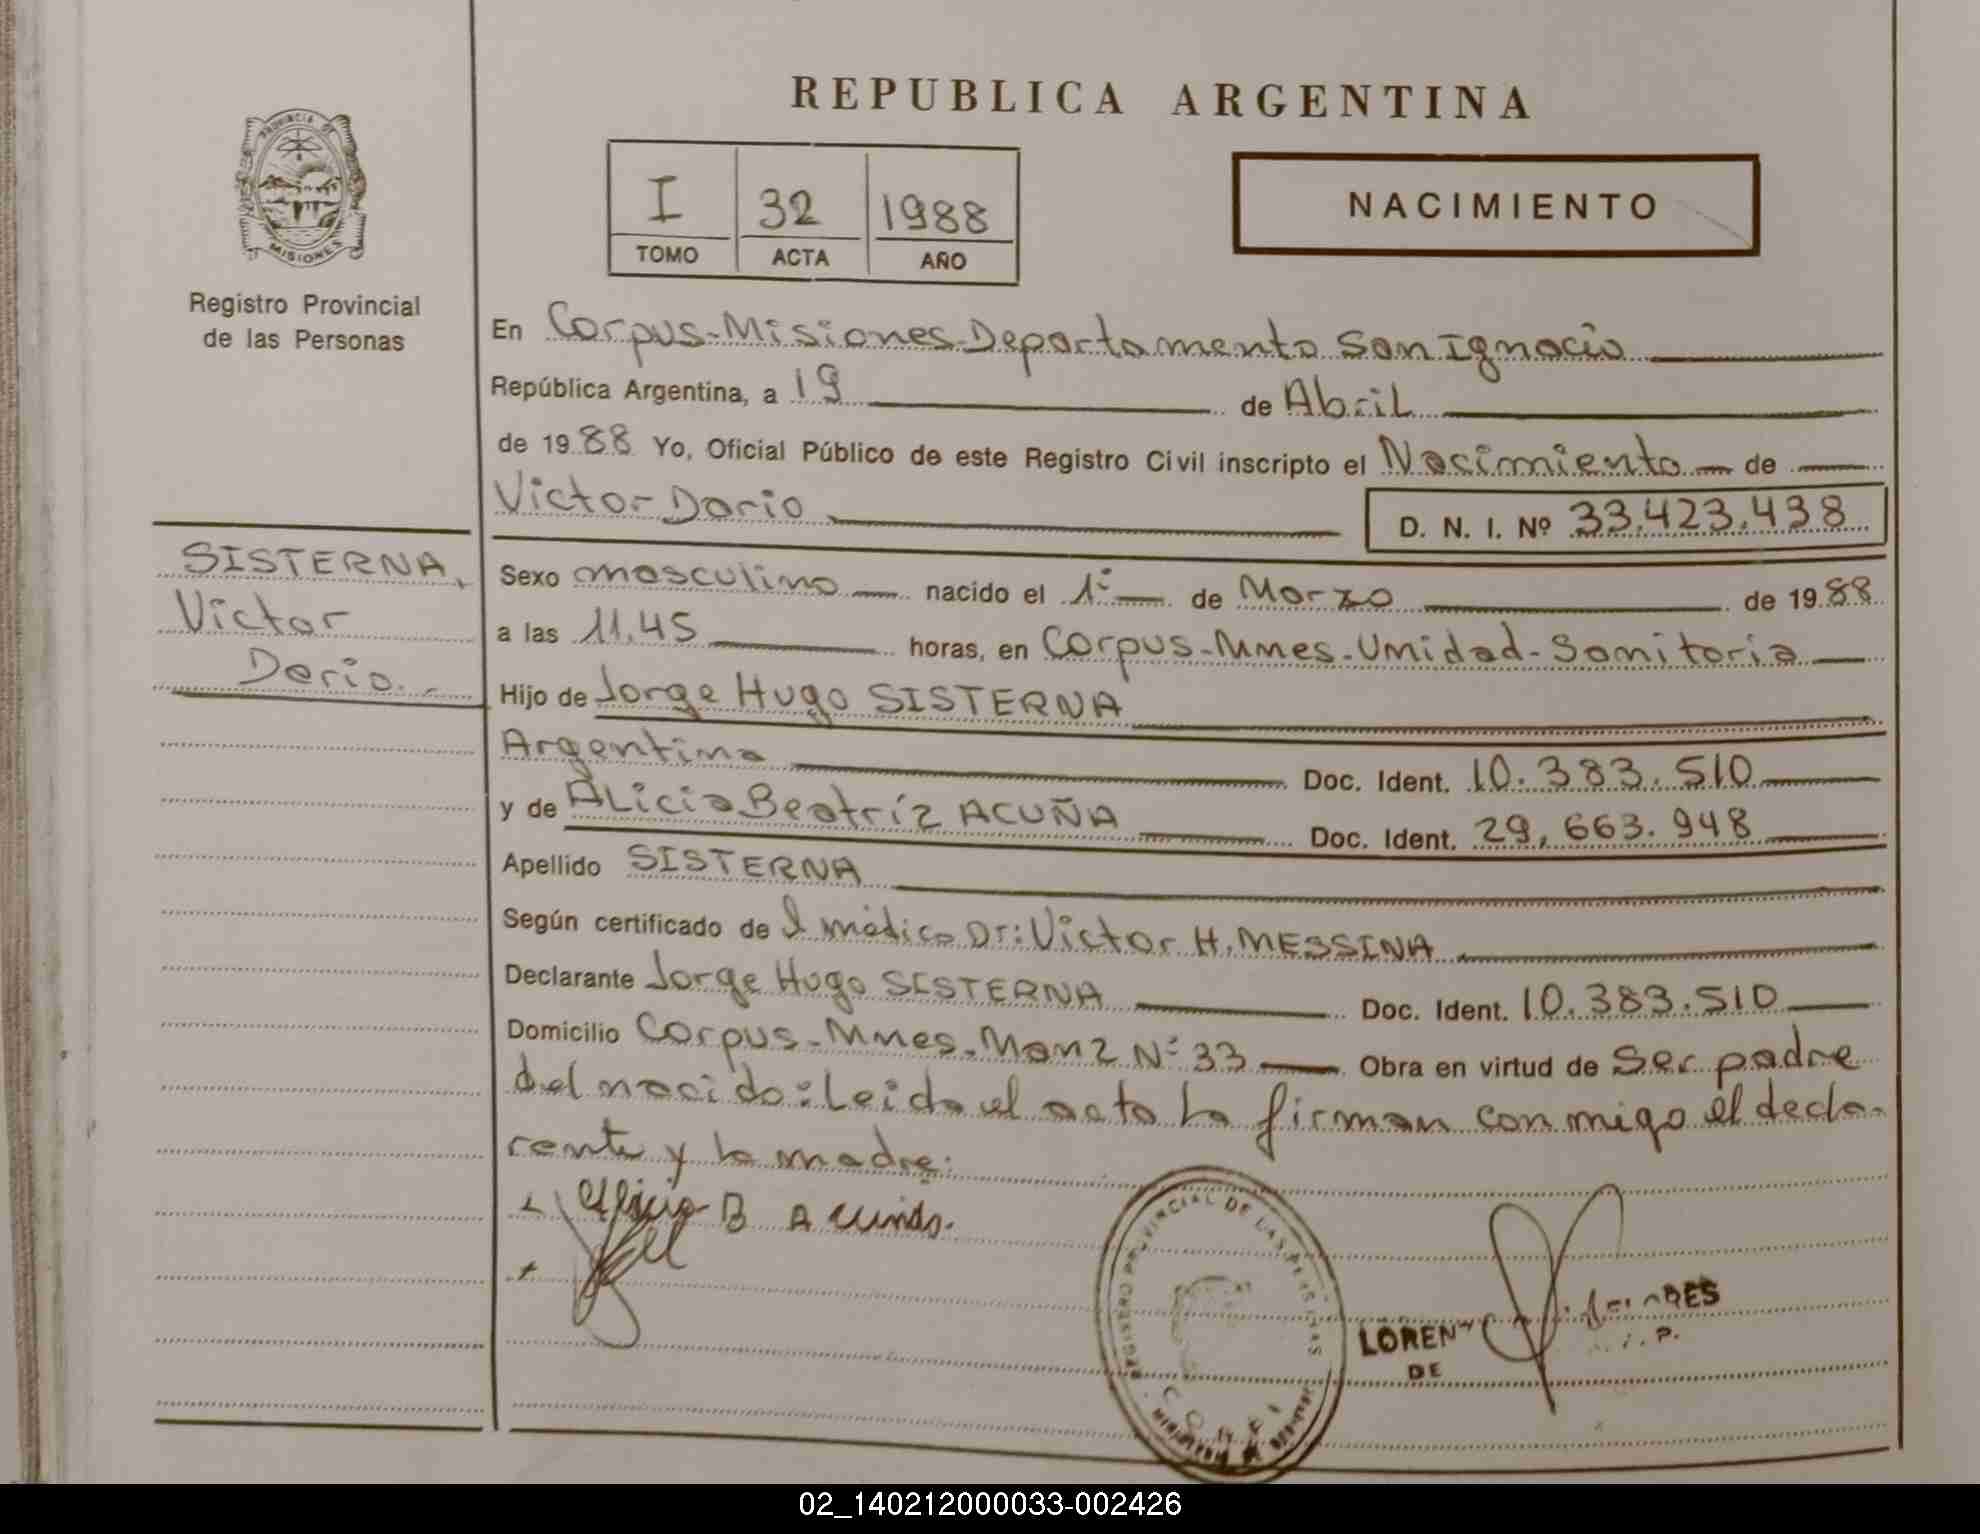 REPUBLICA ARGENTINA
PROVINCIA DE
MISIONES
Registro Provincial
de las Personas
I 32 1988
TOMO ACTA AÑO
NACIMIENTO
En Corpus-Misiones-Departamento San Ignacio
República Argentina, a 19 de Abril
de 1988 Yo, Oficial Público de este Registro Civil inscripto el Nacimiento de
Victor Dario D. N. I. Nº 33.423.438
SISTERNA,
Victor
Dario.-
Sexo masculino nacido el 1º de Marzo de 1988
a las 11.45 horas, en Corpus-Mnes-Unidad-Sanitaria
Hijo de Jorge Hugo SISTERNA
Argentina Doc. Ident. 10.383.510
y de Alicia Beatríz ACUÑA Doc. Ident. 29,663.948
Apellido SISTERNA
Según certificado de l médico Dr: Victor H. MESSINA
Declarante Jorge Hugo SISTERNA Doc. Ident. 10.383.510
Domicilio Corpus-Mnes-Manz Nº 33 Obra en virtud de Ser padre
del nacido: Leida el acta la firman conmigo el decla-
rante y la madre.
B Acuña.
REGISTRO PROVINCIAL DE LAS PERSONAS
DE
02_140212000033-002426